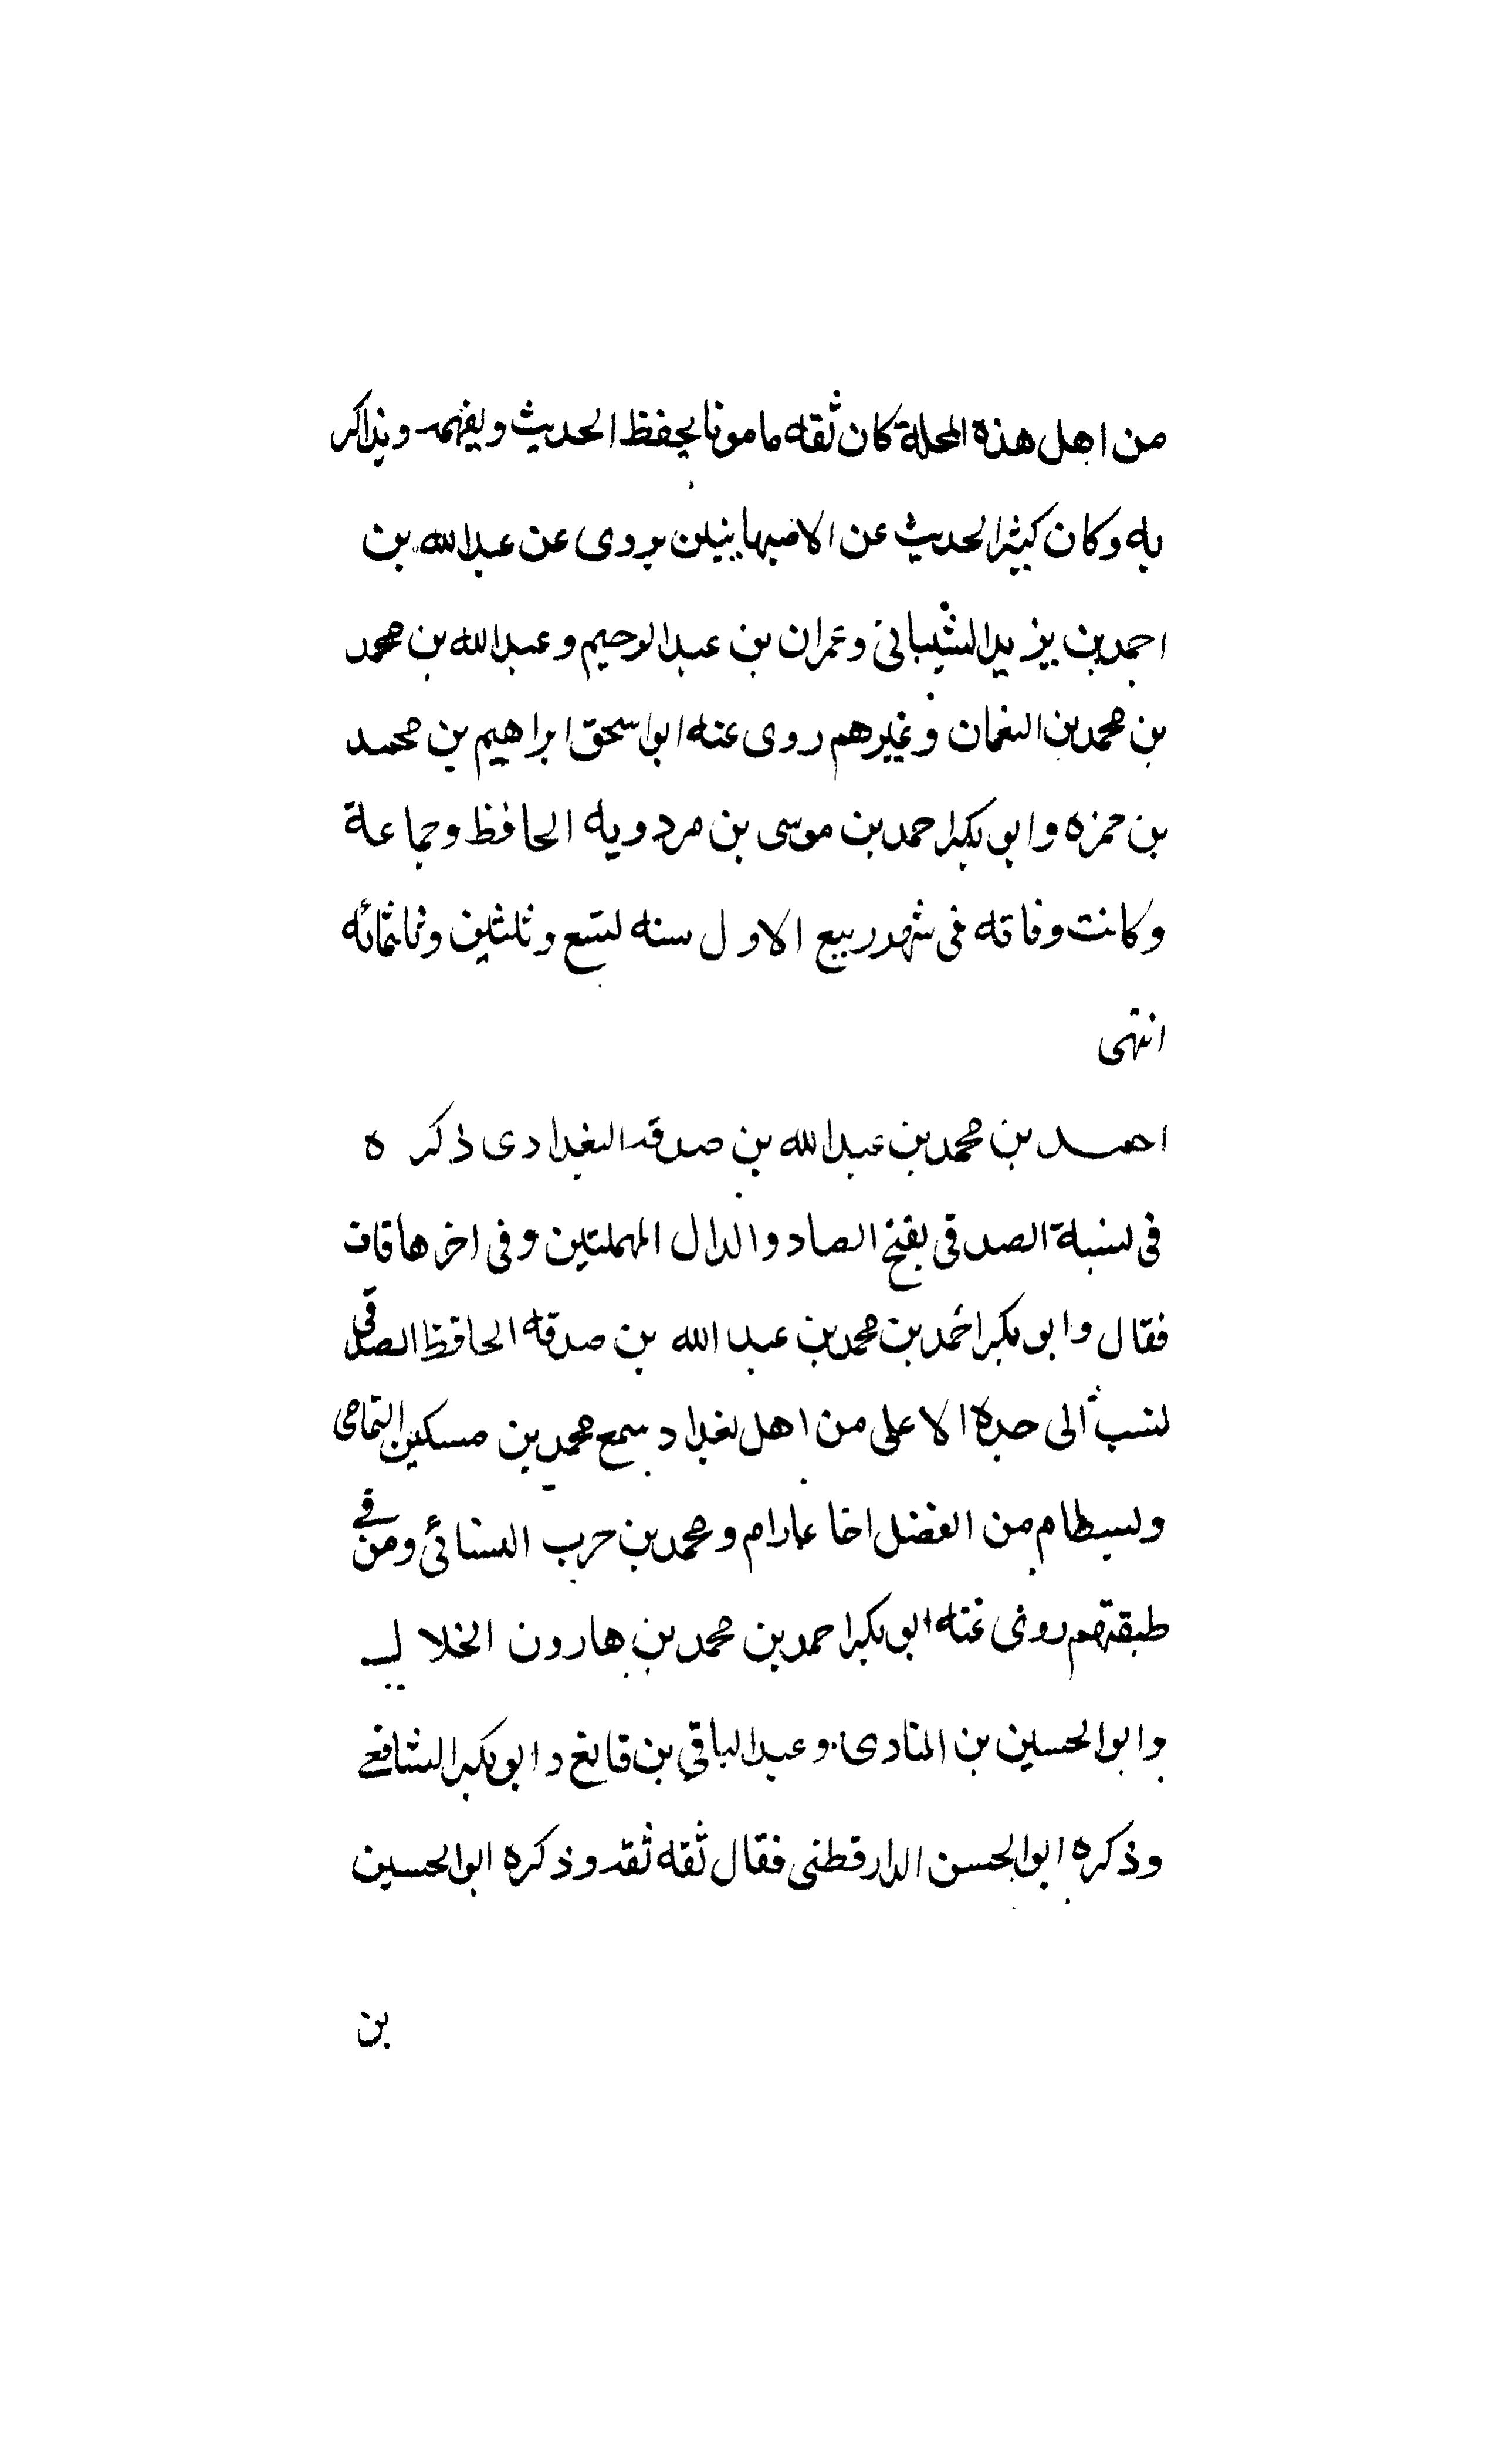 من اهل هذة المحلة كان ثقه مامونا يحفظ الحديث ويفهمه ويذاكر
به وكان كثير الحديث عن الاصبهانيين يروى عن عبد الله بن
احمد بن يزيد الشيبانى وعمران بن عبد الرحيم وعبد الله بن محمد
بن محمد بن النعمان وغيرهم روى عنه ابو اسحق ابراهيم بن محمد
بن حمزه وابو بكر احمد بن موسى بن مردويه الحافظ وجماعة
وكانت وفاته فى شهر ربيع الاول سنه تسع وثلثين وثلثمائه
انتهى
احمد بن محمد بن عبد الله بن صدقه البغدادى ذكره
فى نسبة الصدقى بفتح الصاد والدال المهملتين وفى اخرها قاف
فقال وابو بكر احمد بن محمد بن عبد الله بن صدقه الحافظ الصدقى
نسب الى جده الاعلى من اهل بغداد سمع محمد بن مسكين اليمامى
وبسطام بن الفضل اخا عارم ومحمد بن حرب النسائى ومن فى
طبقتهم روى عنه ابو بكر احمد بن محمد بن هارون الخلال
وابو الحسين بن المنادى وعبد الباقى بن قانع وابو بكر الشافعى
وذكره ابو الحسن الدارقطنى فقال ثقه ثقه وذكره ابو الحسين
بن